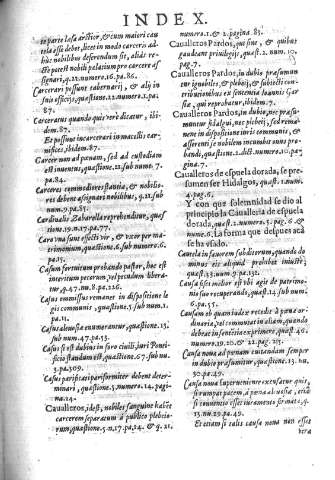 INDEX.
te parte læsa arctior, & cum maiori cau
tela esse debet, licet in modo carceris ad-
huc nobilibus deferendum sit, alids re-
cte potest nobili palatium pro carcere as
signari, q.12. numero.16. pa.86.
Carcerari possunt tabernarij, & alij in
suis officijs, quæstione.12. numero.2. pa.
87.
Carceratus quando quis verè dicatur, ibi-
dem.87.
Et possunt incarcerari in macellis car-
nifices, ibidem.87.
Carcer non ad pœnam, sed ad custodiam
est inuentus, quæstione.12. sub nume. 7.
pa.84.
Carceres commodiores stantia, & nobilio-
res debent assignari nobilibus, q.12. sub
num.9. pa.85.
Cardinalis Zabarella reprehenditur, quæs-
tione.19. n.17. pa.77.
Cara una sunt effecti vir, & uxor per ma-
trimonium, quæstione.6. sub numero.6.
pa.15.
Casum fortuitum probando pastor, hoc est
interitum pecorum, vel pecudum libera-
tur, q.47. num.8. pa.126.
Casus omissus remanet in dispositione le
gis communis, quæstione.5. sub num.1.
pa.11.
Casus aleuosiæ enumerantur, quæstione.15.
sub num.47. pa.13.
Casus si est dubius in foro ciuili, iuri Ponti-
ficio standum est, quæstione.67. sub nu.
3. pa.309.
Casus periphrati pariformiter debent deter-
minari, quæstione.5. numero.14. pagi-
na.14.
Caualleros, idest, nobiles sanguine habẽt
carcerem separatum à publico plebeio-
rum, quæstione.5. n.17. pa.14. & q. 21.
numero.1. & 2. pagina.85.
Caualleros Pardos, qui sint, & quibus
gaudeant priuilegijs, quæst.2. num.19.
pag.7.
Caualleros Pardos, in dubio præsumun
tur ignobiles, & plebeij, & subiecti con-
tributionibus ex sententia Ioannis Gar-
siæ, qui reprobatur, ibidem.7.
Caualleros Pardos, in dubio, nec præsu-
muntur hidalgui, nec plebeij, sed rema-
nent in dispositione iuris communis, &
asserenti se nobilem incumbit onus pro-
bandi, quæstione.2. dict. numero.10. pa-
gina.7.
Caualleros de espuela dorada, se pre-
sumen ser Hidalgos, quæst.2. num.
4. pag.6.
Y con que solemnidad se dio al
principio la Caualleria de espuela
dorada, quæstione.2. sub numero.
numero.6. La forma que despues acà
se ha vsado.
Cautela in fauorem subditorum, quando do
minus eis aliquid prohibet iniustè;
quæst.13. num.9. pa.132.
Causa esset melior est ubi agit de patrimo-
nio suo recuperando, quæst.6. sub num.
6. pa.55.
Causam ob quam iudex recedit à pœna or-
dinaria, vel commutat in aliam, quando
teneatur in sententia exprimere, quæst.40.
numero.19.20. & 22. pag. 213.
Causa noua ad pœnam euitandam semper
in dubio præsumitur, quæstione.13. nu.
30. pa.49.
Causa noua superueniente excusatur quis,
si non seruat promissum, aut rationem, etiam
si conuentio esset iuramento firmata, q.
13. nu.29. pa.49.
Et etiam si talis causa noua non esset
vera